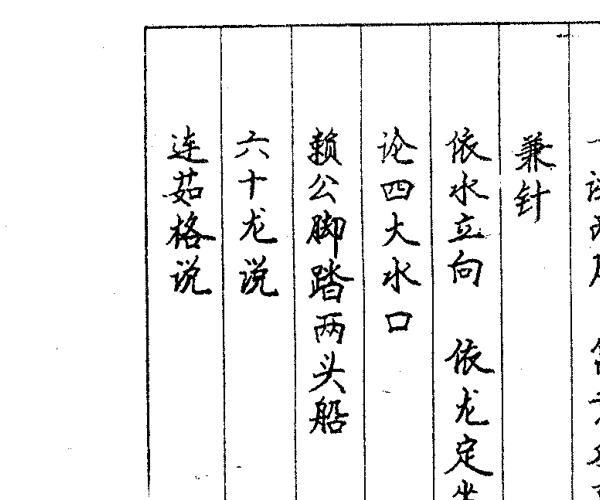 兼针
依水立向 依龙定
论四大水口
赖公脚踏两头船
六十龙说
连茹格说